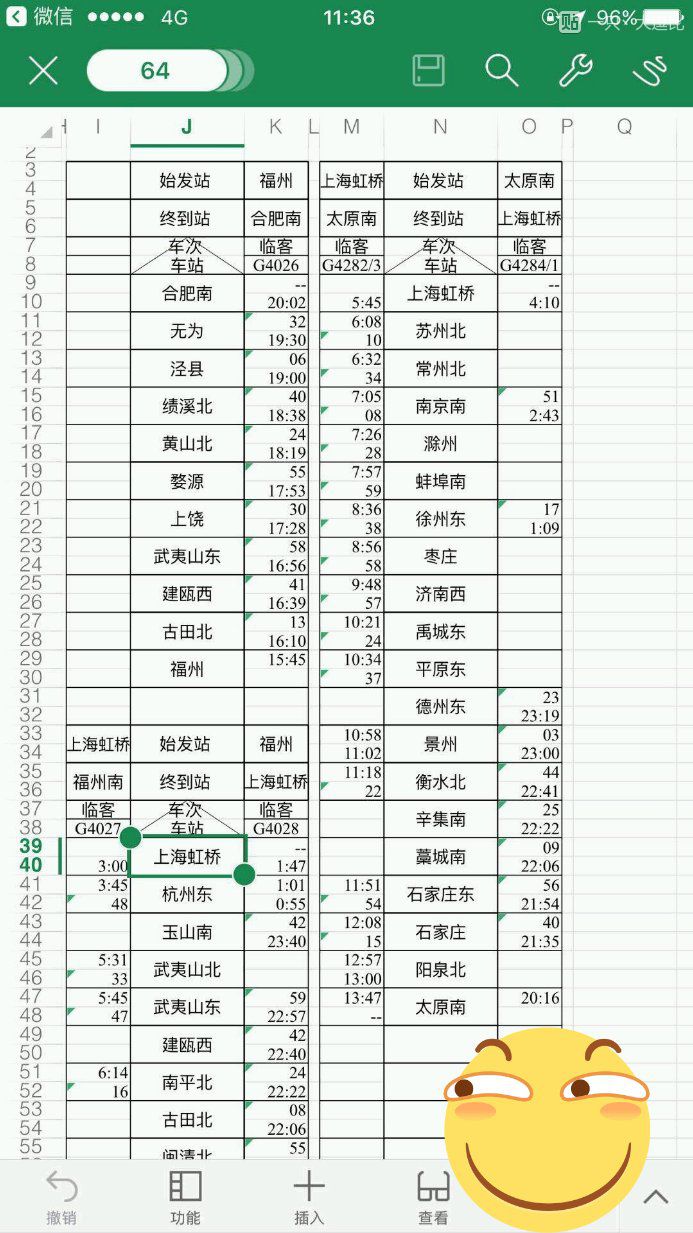 微信 4G 11:36 96%
贴
64
H I J K L M N O P Q
2
3 始发站 福州 上海虹桥 始发站 太原南
4
5 终到站 合肥南 太原南 终到站 上海虹桥
6
7 车次 临客 临客 车次 临客
8 车站 G4026 G4282/3 车站 G4284/1
9 合肥南 -- 上海虹桥 --
10 20:02 5:45 4:10
11 无为 32 6:08 苏州北
12 19:30 10
13 泾县 06 6:32 常州北
14 19:00 34
15 绩溪北 40 7:05 南京南 51
16 18:38 08 2:43
17 黄山北 24 7:26 滁州
18 18:19 28
19 婺源 55 7:57 蚌埠南
20 17:53 59
21 上饶 30 8:36 徐州东 17
22 17:28 38 1:09
23 武夷山东 58 8:56 枣庄
24 16:56 58
25 建瓯西 41 9:48 济南西
26 16:39 57
27 古田北 13 10:21 禹城东
28 16:10 24
29 福州 15:45 10:34 平原东
30 37
31 德州东 23
32 23:19
33 上海虹桥 始发站 福州 10:58 景州 03
34 11:02 23:00
35 福州南 终到站 上海虹桥 11:18 衡水北 44
36 22 22:41
37 临客 车次 临客 辛集南 25
38 G4027 车站 G4028 22:22
39 上海虹桥 -- 藁城南 09
40 3:00 1:47 22:06
41 3:45 杭州东 1:01 11:51 石家庄东 56
42 48 0:55 54 21:54
43 玉山南 42 12:08 石家庄 40
44 23:40 15 21:35
45 5:31 武夷山北 12:57 阳泉北
46 33 13:00
47 5:45 武夷山东 59 13:47 太原南 20:16
48 47 22:57 --
49 建瓯西 42
50 22:40
51 6:14 南平北 24
52 16 22:22
53 古田北 08
54 22:06
55 闽清北 55
撤销 功能 插入 查看